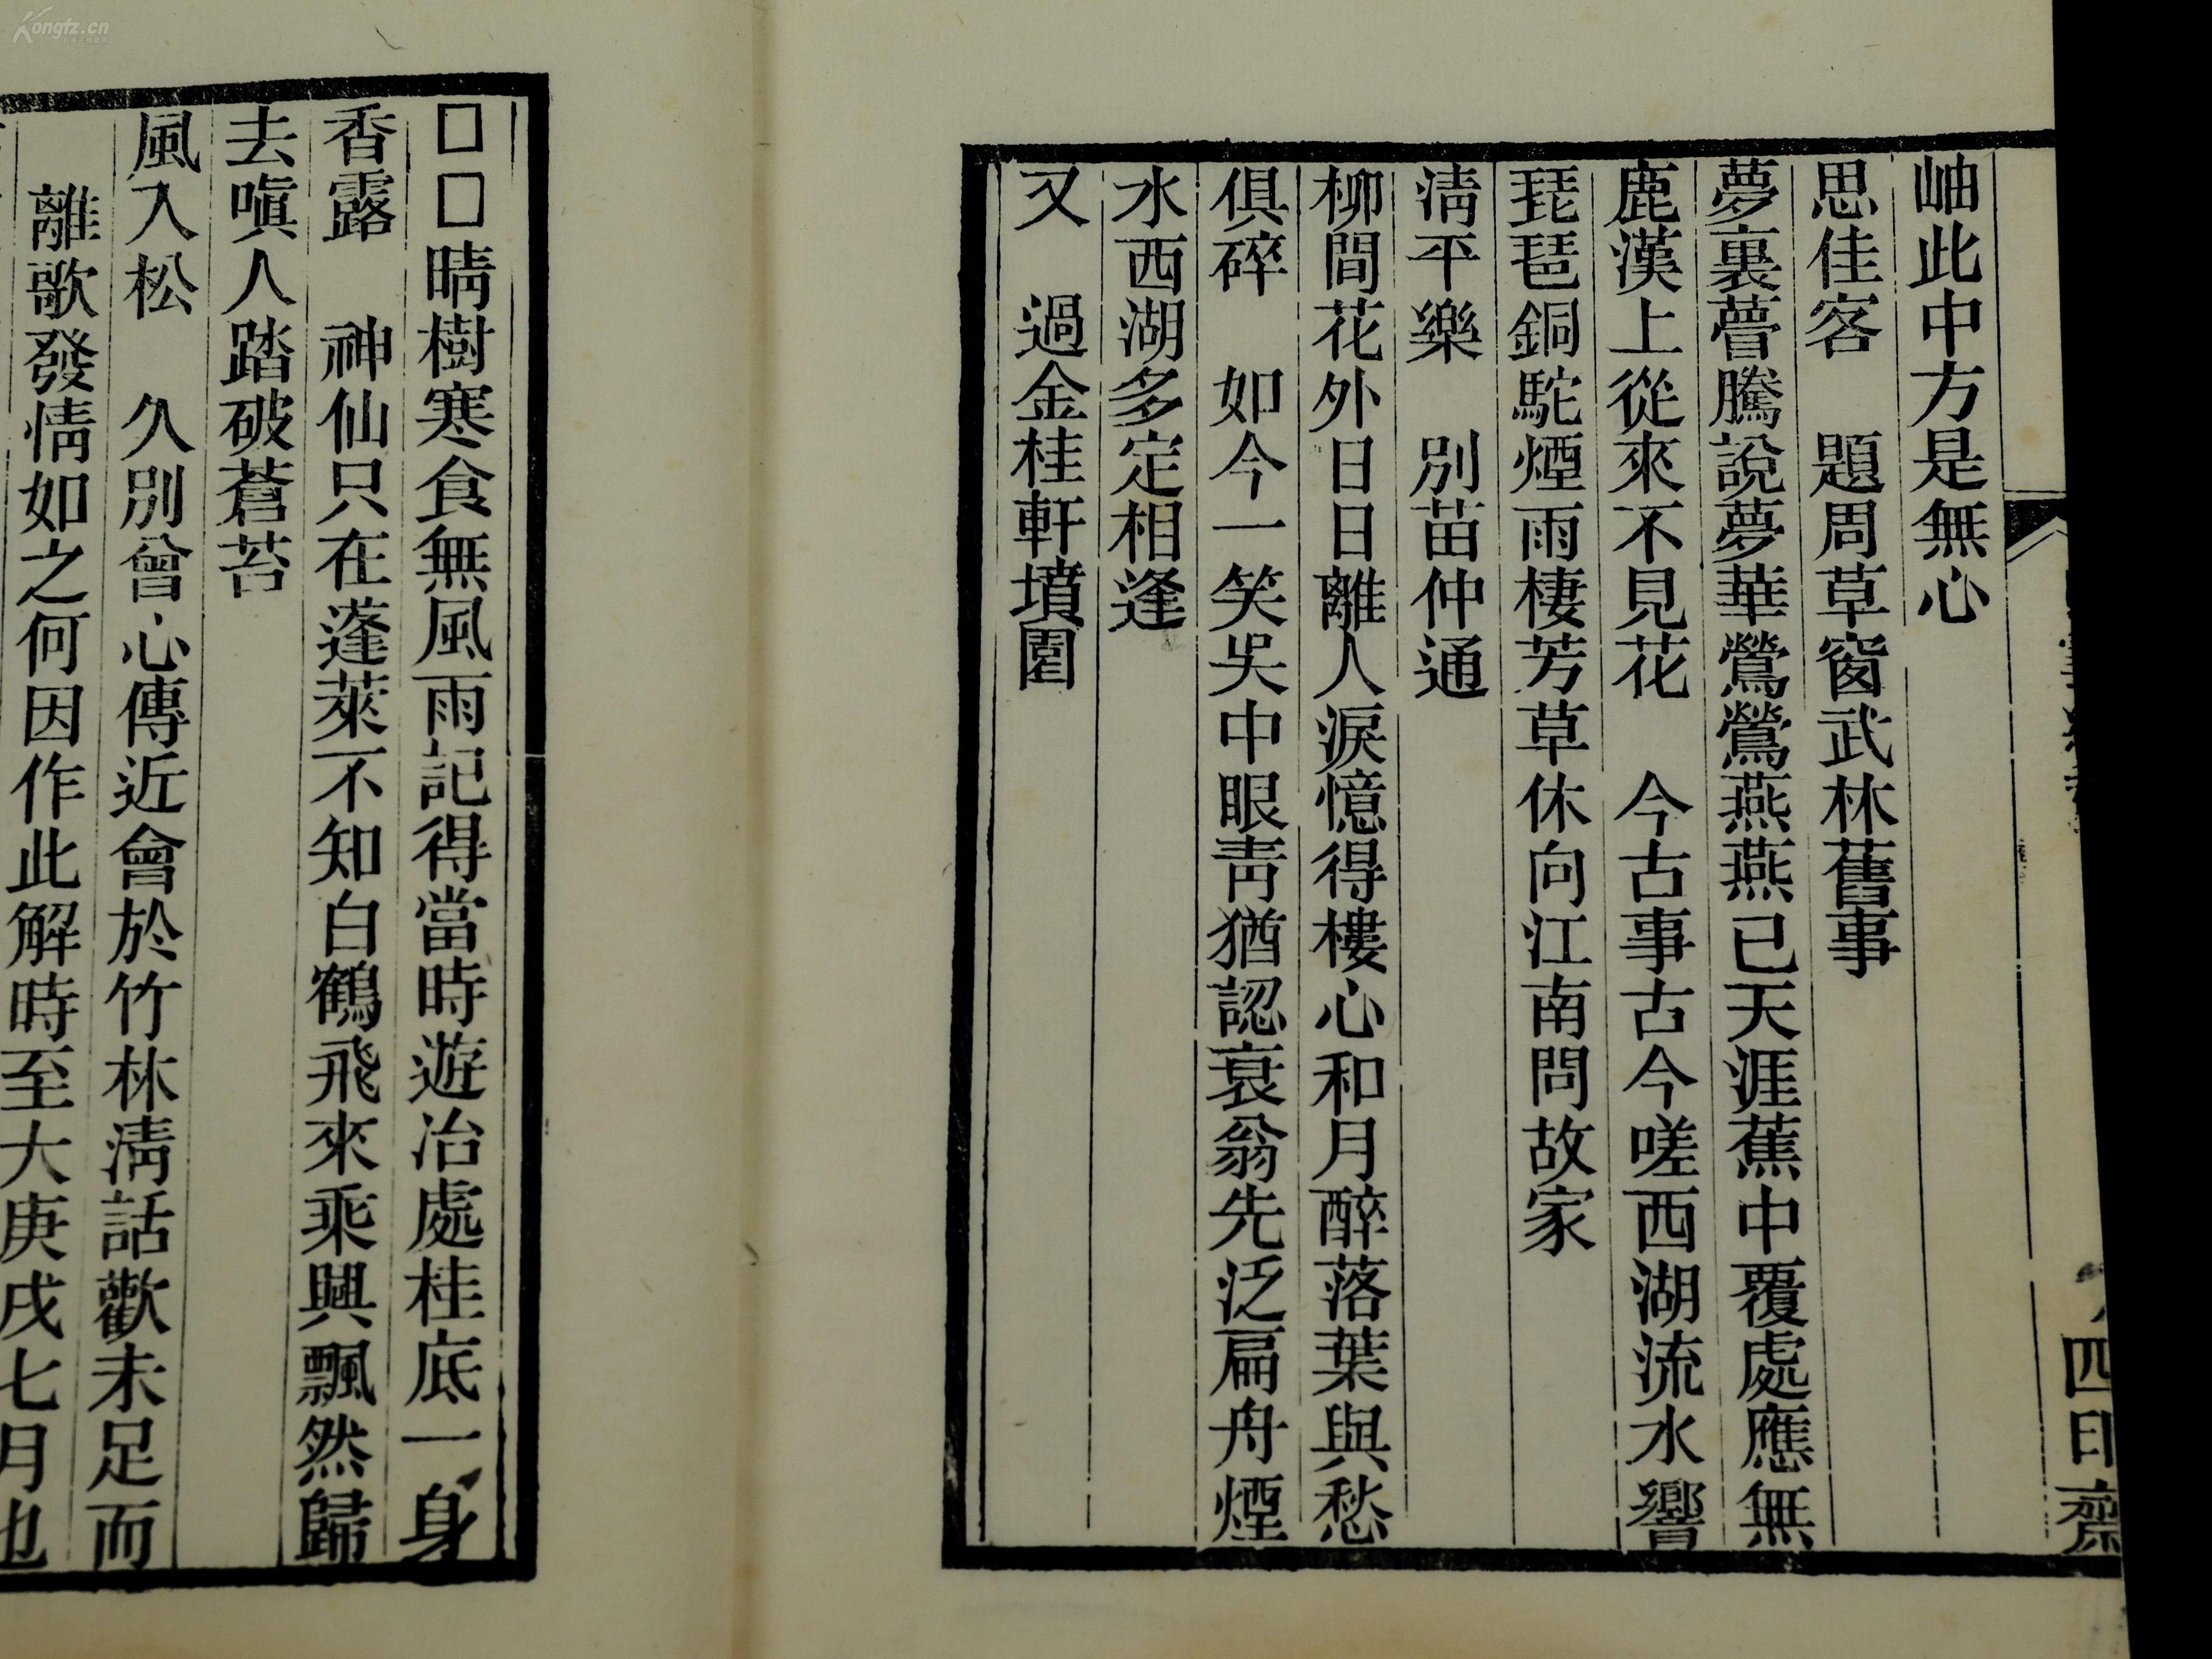 岫此中方是無心
思佳客　題周草窗武林舊事
夢裏瞢騰說夢華鶯鶯燕燕已天涯蕉中覆處應無
鹿漢上從來不見花　今古事古今嗟西湖流水響
琵琶銅駝煙雨棲芳草休向江南問故家
淸平樂　別苗仲通
柳間花外日日離人淚憶得樓心和月醉落葉與愁
俱碎　如今一笑吳中眼靑猶認衰翁先泛扁舟煙
水西湖多定相逢
又　過金桂軒墳園
□□晴樹寒食無風雨記得當時遊冶處桂底一身
香露　神仙只在蓬萊不知白鶴飛來乘興飄然歸
去嗔人踏破蒼苔
風入松　久別曾心傳近會於竹林淸話歡未足而
離歌發情如之何因作此解時至大庚戌七月也
四印齋
Kongfz.cn